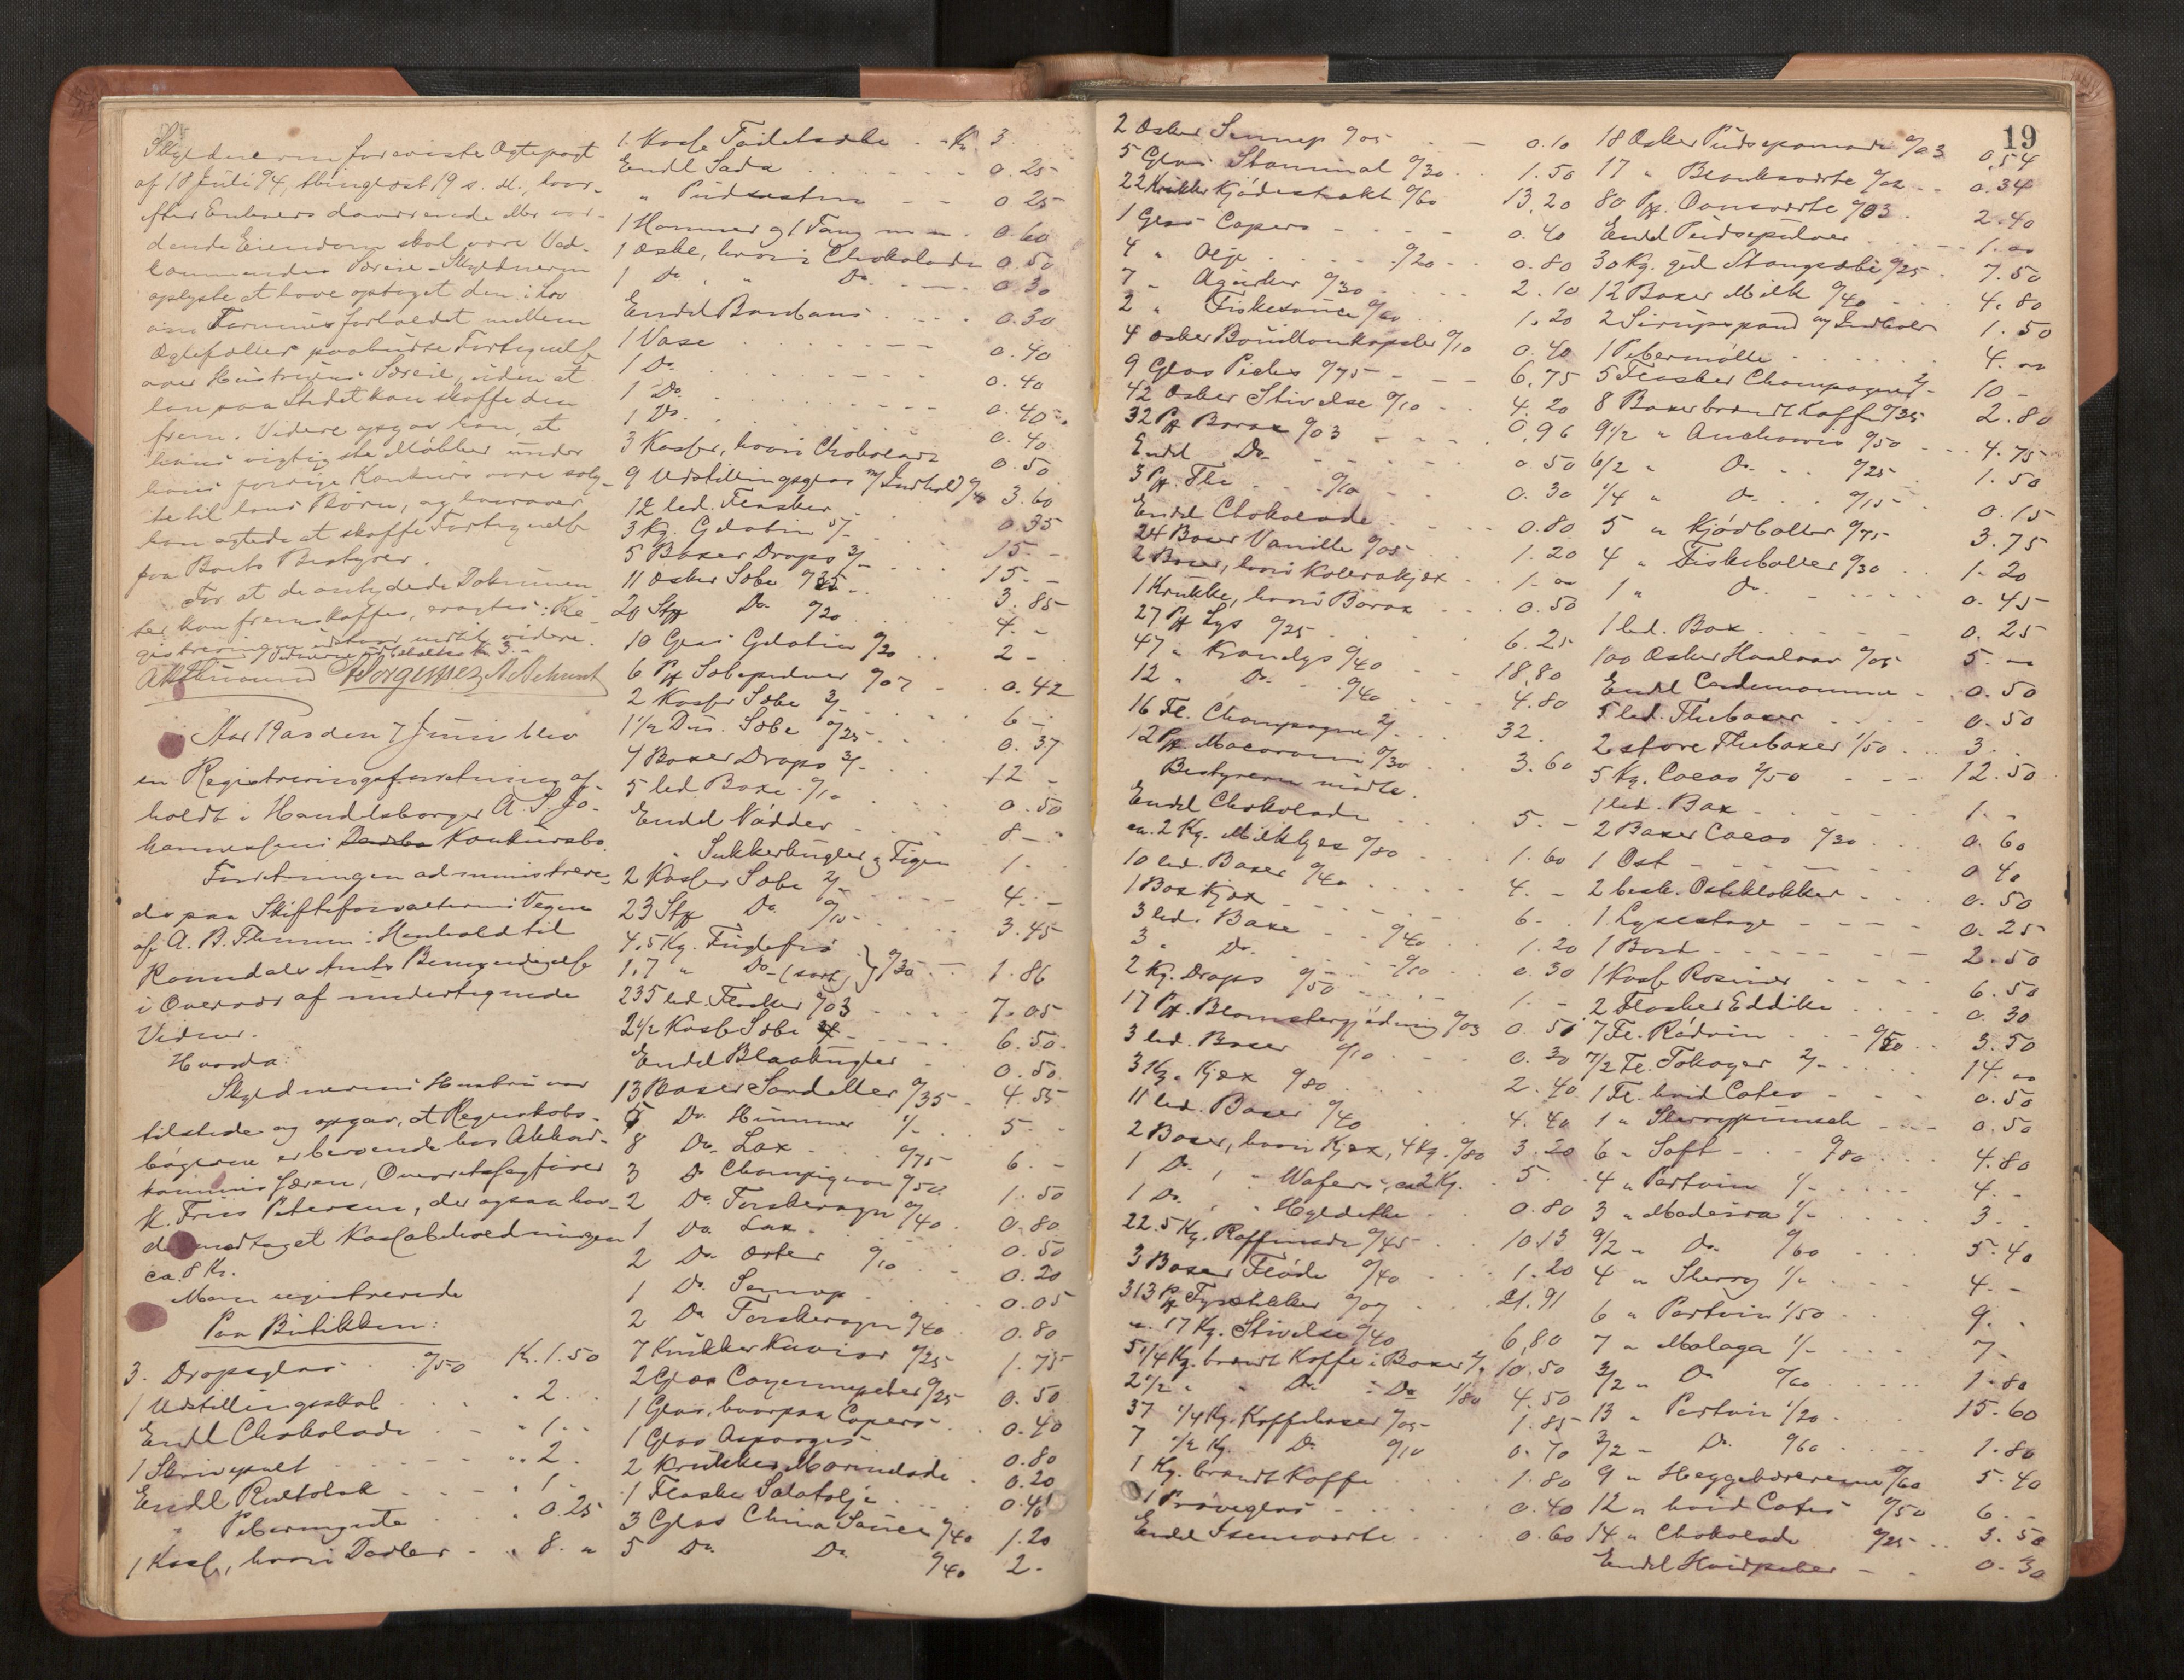 Skyldneren foreviste Ægtepagt
af 18 Juli 94, thinglæst 19 s. M., hvor-
efter Enhvers daværende eller vor-
dende Eiendom skal være Ved-
kommendes Særeie. Skyldneren
oplyste at have optaget den i Lov
om Formuesforholdet mellem
Ægtefæller paabudte Fortegnelse
over Hustruens Særeie, uden at
han paa Stedet kan skaffe den
frem. Videre opgav han, at
hans vigtigste Møbler under
hans forrige Konkurs være solg-
te til hans Børn, og hvorover
han agtede at skaffe Fortegnelse
fra Boets Bestyrer.
For at de antydede Dokumen-
ter kan fremskaffes, eragtes: Re-
gistreringen udstaar indtil videre.
Vidnerne tilkom Kr. 3.-
Aar 1900 den 7 Juni blev
en Registreringsforretning af-
holdt i Handelsborger A. S. Jo-
hannessens Konkursbo.
Forretningen administrere-
des paa Skifteforvalterens Vegne
af A. B. Thmm i Henhold til
Romsdals Amts Bemyndigelse
i Overvær af undertegnede
Vidner.
Hvorda:
Skyldnerens Hustru var
tilstede og opgav, at Regnskabs-
bøgerne er beroende hos Akkord-
kommissæren, Overretssagfører
K. Friis Petersen, der ogsaa hav-
de modtaget Kassabeholdningen
ca. 8 Kr.
Man registrerede
Paa Butikken:
3. Dropsglas . 0/50 Kr. 1.50
1 Udstillingsskab . . " 2.
Endel Chokolade . - " 1. -
1 Skrivepult - - - " 2.
Endel Rultobak - - " 1.
" Pebermynte . . 0.25
1 Kasse, hvori Dadler - " 8. "
1 Kasse Toiletsæbe . . Kr. 3.
Endel Soda . . . 0.25
" Pudsesten - - 0.25
1 Hammer og 1 Tang m. m. 0.60
1 Æske, hvori Chokolade 0.50
1 Do. " Do. . . 0.30
Endel Bonbons . . . 0.30
1 Vase . . . 0.40
1 Do. . . . 0.40
1 Do. . . . 0.40
1 Do. . . . 0.40
3 Kasser, hvori Chokolade 0.50
9 Udstillingsglas m/ Indhold 0/40 3.60
12 led. Flasker . . 0.35
3 Kg. Gelatin 5/- . . 15.-
5 Boxer Drops 3/- . . 15.-
11 Æsker Sæbe 0/35 . . 3.85
20 Stk Do. 0/20 . . 4.-
10 Glas Gelatin 0/20 . . 2-
6 Pk Sæbepulver 0/07 - . 0.42
2 Kasser Sæbe 3/- . . 6-
1 1/2 Dus. Sæbe 0/25 . . 0.37
4 Boxer Drops 3/- . . 12-
5 led. Boxe 0/10 . . 0.50
Endel Nødder . . 8-
" Sukkerkugler og Figen 1.
2 Kasser Sæbe 2/- . . 4.-
23 Stk Do. 0/15 . . 3.45
4,5 Kg. Fuglefrø
1,7 " Do. (sort) } 0/30 - 1.86
235 led. Flasker 0/03 . . 7.05
2 1/2 Kasse Sæbe . . 6.50
Endel Blaakugler - 0.50
13 Boxer Sardeller 0/35 - 4.55
5 Do. Hummer 1/- . 5-
8 Do. Lax . 0/75 . 6.-
3 Do. Champignon 0/50 1.50
2 Do. Torskerogn 0/40 . 0.80
1 Do. Lax . . 0.50
2 Do. Erter 0/10 . . 0.20
1 Do. Sennep . . 0.05
2 Do. Torskerogn 0/40 . 0.80
7 Krukker Kaviar 0/25 1.75
2 Glas Cayennepeber 0/25 0.50
1 Glas, hvorpaa Capers . 0.40
1 Glas Asparges . . 0.80
2 Krukker Marmelade . 0.20
1 Flaske Salatolje . . 0.40
3 Glas China Sauce 0/40 1.20
5 Do. Do. 0/40 2-
19
2 Æsker Sennep 0/05 - 0.10
5 Glas Stanniol 0/30 . . 1.50
22 Krukker Kjødextrakt 0/60 13.20
1 Glas Capers - - - 0.40
4 " Olje . . 0/20 - 0.80
7 " Agurker 0/30 . . 2.10
2 " Fiskesauce 0/60 . 1.20
4 Æsker Bouillonkapsler 0/10 0.40
9 Glas Picles 0/75 - - - 6.75
42 Æsker Stivelse 0/10 - - 4.20
32 Pk Borax 0/03 - - - 0.96
Endel Do. - - - 0.50
3 Pk. The . . 0/10 - - 0.30
Endel Chokolade . - - 0.80
24 Boxer Vanille 0/05 . . 1.20
2 Boxer, hvori Kolerakjex . 1.00
1 Krukke, hvori Borax . . 0.50
27 Pk Lys 0/25 . . . 6.25
47 " Kronlys 0/40 - . . 18.80
12 " Do. . 0/40 . . 4.80
16 Fl. Champagne 2/- . . 32.
12 Pk. Macaroni 0/30 . . 3.60
Bestyreren mødte.
Endel Chokolade . . 5.-
ca. 2 Kg. Milkkjex 0/80 . . 1.60
10 led. Boxer 0/40 . . . 4.-
1 Box Kjex - - - 6-
3 led. Boxe . . 0/40 . . 1.20
3 " Do. . . 0/10 . 0.30
2 Kg. Drops 0/50 . . 1.-
17 Pk. Blomstergjødning 0/03 0.51
3 led. Boxer 0/10 . . 0.30
3 Kg. Kjex 0/80 . . 2.40
11 led. Boxer 0/40 . . 4.40
2 Boxer, hvori Kjex, 4 Kg. 0/80 3.20
1 Do. " Wafers, ca 2 Kg. . 5.
1 Do. " Hyldethe . 0.80
22.5 Kg. Raffinade 0/45 . . 10.13
3 Boxer Fløde 0/40 . . 1.20
313 Pk Fyrstikker 0/07 . . 21.91
ca. 17 Kg. Stivelse 0/40 6.80
5 1/4 Kg. brændt Kaffe i Boxer 2/- 10.50
2 1/2 " " Do. " Do 1/80 4.50
37 1/4 Kg. Kaffeboxer 0/05 1.85
7 1/2 Kg. Do. 0/10 0.70
1 Kg. brændt Kaffe . . 1.80
1 Prøveglas - - - 0.40
Endel Isenværte . . 0.60
18 Æsker Pudsepomade 0/03 0.54
17 " Blanksværte 0/02 - - 0.34
80 Pk. Ovnsværte 0/03 . 2.40
Endel Pudsepulver . . - 1.00
30 Kg. gul Stangsæbe 0/25 . 7.50
12 Boxer Milk 0/40 . . 4.80
2 Sirupsspand og Indhold 1.50
1 Pebermølle . . . 4.00
5 Flasker Champagne 2/- 10-
8 Boxer brændt Kaffe 0/35 2.80
9 1/2 " Anchovis 0/50 . . . 4.75
6/2 " Do. . . 0/25 1.50
1/4 " Do. . . 0/15 . 0.15
5 " Kjødboller 0/75 3.75
4 " Fiskeboller 0/30 . . 1.20
1 " Do. - - - 0.45
1 led. Box . . . 0.25
100 Æsker Haalaar 0/05 5.-
Endel Cardemomme - 0.50
5 led. Theboxer . . . 0.50
2 store Theboxer 1/50 . . 3.
5 Kg. Cacao 2/50 - - - 12.50
1 led. Box . . . 1.-
2 Boxer Cacao 0/30 . . 0.60
1 Ost - - - 0.40
2 besk. Osteklokker . . . 0.50
1 Lysestage - - - 0.25
1 Bord - - - 2.50
1 Kasse Rosiner . . . 6.50
2 Flasker Eddike . . 0.30
7 Fl. Rødvin . . 0/50 . . 3.50
7/2 Fl. Tokayer 2/- . . 14.00
1 Fl. hvid Cates - - 0.50
1 " Sherrypunsch - - - 0.50
6 " Saft - - - 0/80 . . . 4.80
4 " Portvin 1/- . . . 4.-
3 " Madeira 1/- . . . 3.
9/2 " Do. 0/60 . . . 5.40
4 " Sherry 1/- . . . 4.-
6 " Portvin 1/50 . . . 9.
7 " Malaga 1/- . . . 7-
3/2 " Do 0/60 . . . 1.80
13 " Portvin 1/20 . . . 15.60
3/2 - Do. 0/60 . . . 1.80
9 " Heggebærcreme 0/60 5.40
12 " hvid Cates 0/50 6.-
14 " Chokolade 0/25 . . 3.50
Endel Hvidpeber - . 0.30